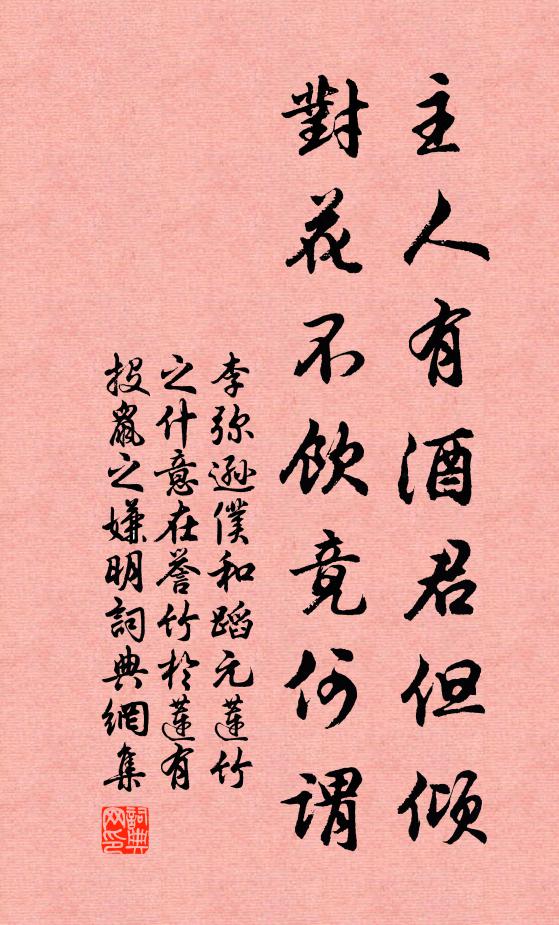 主人有酒君但傾
對花不飲竟何謂
李弥遜僕和蹈元蓮竹
之什意在誉竹於蓮有
投鼠之嫌明詞典網集
詞典网印